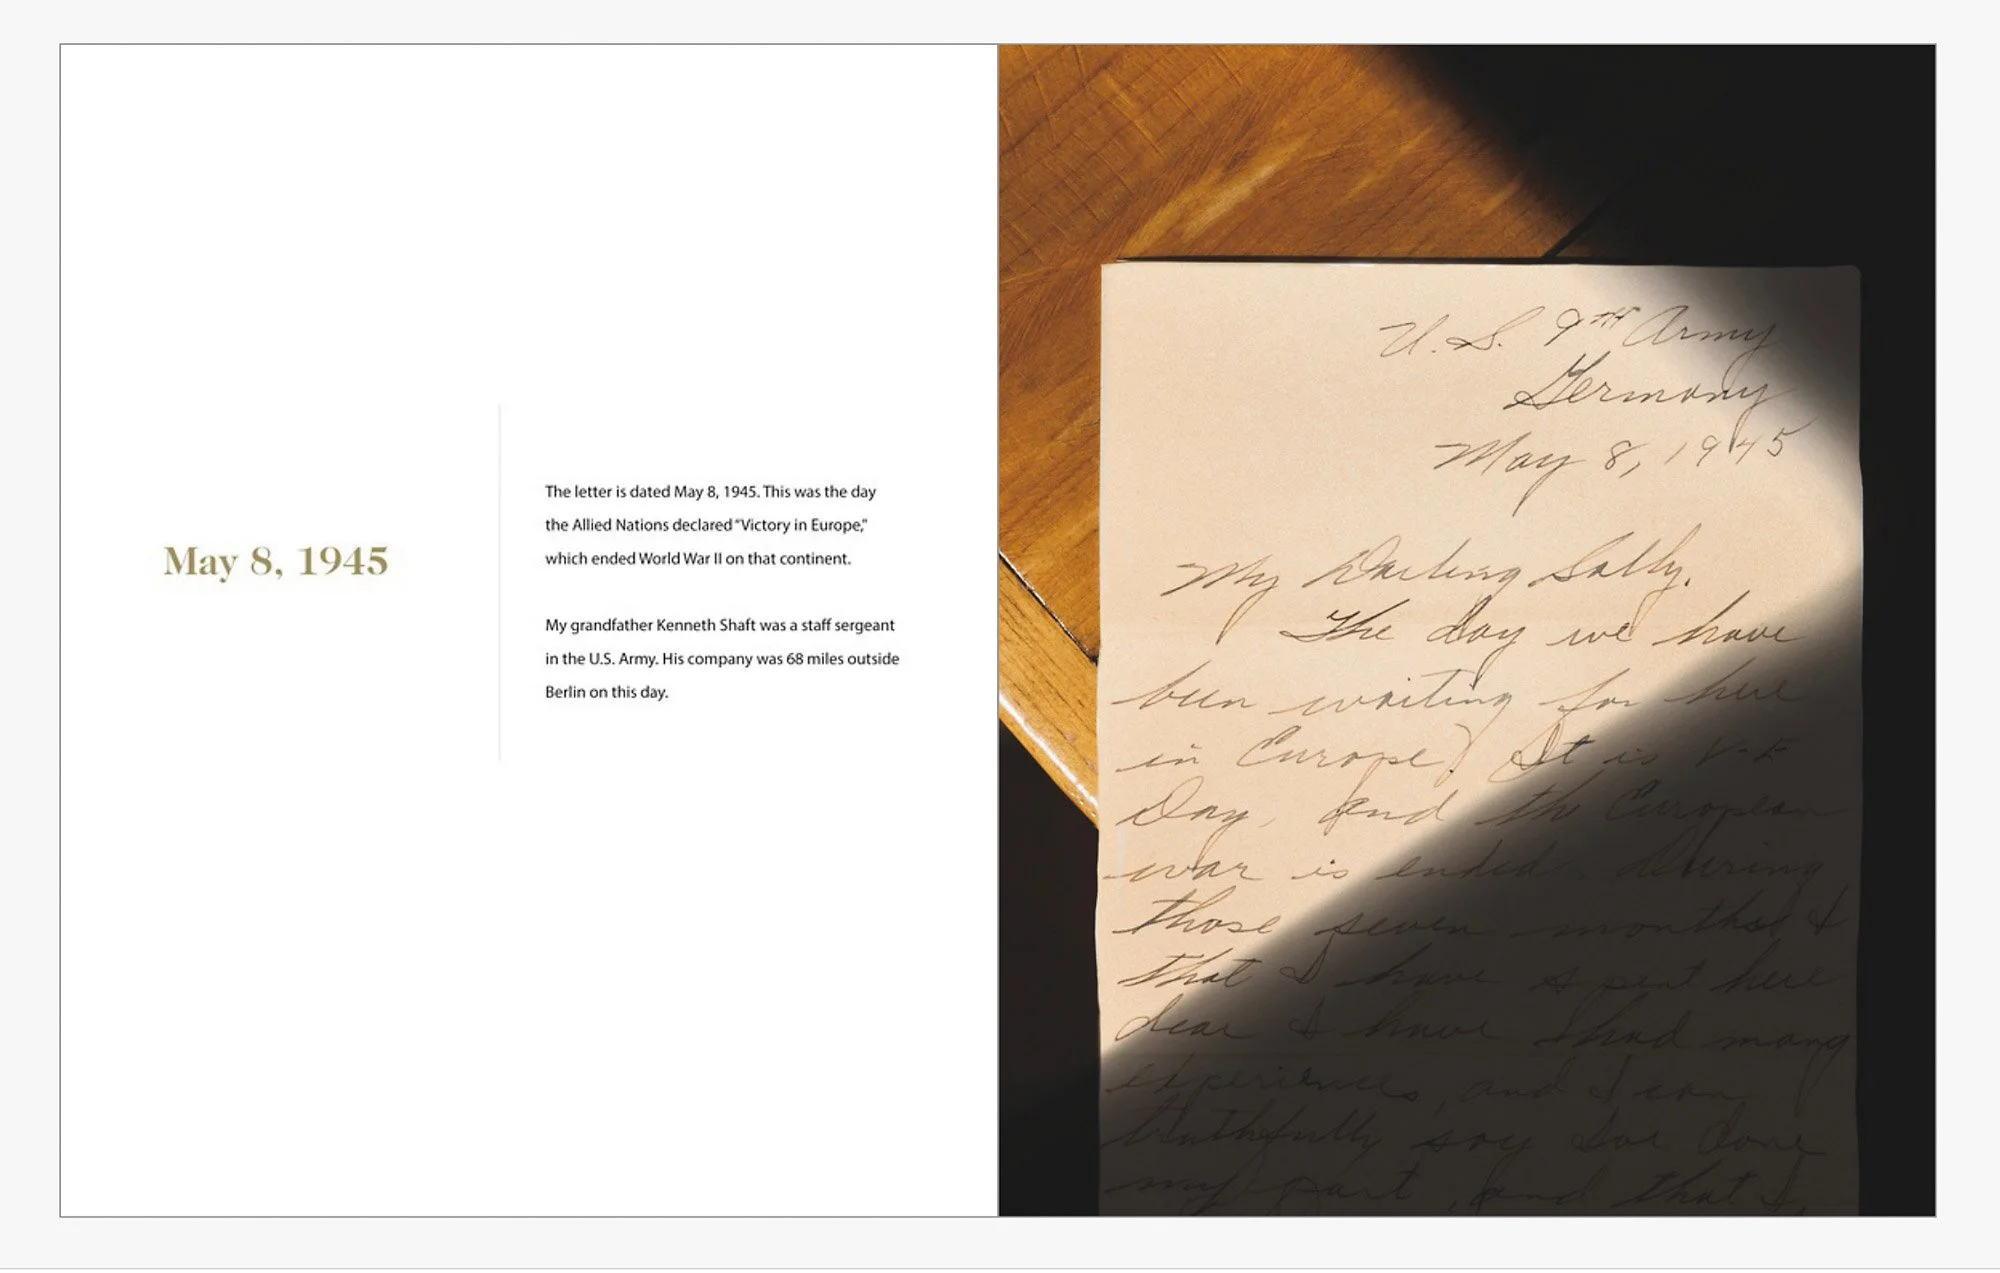 May 8, 1945
The letter is dated May 8, 1945. This was the day
the Allied Nations declared “Victory in Europe,”
which ended World War II on that continent.
My grandfather Kenneth Shaft was a staff sergeant
in the U.S. Army. His company was 68 miles outside
Berlin on this day.
U. S. 9TH Army
Germany
May 8, 1945
My Darling Sally.
The day we have
been waiting for here
in Europe. It is V-E
Day, and the European
war is ended. During
those seven months
that I have spent here
dear I have had many
experiences, and I can
truthfully say I've done
my part, and that I